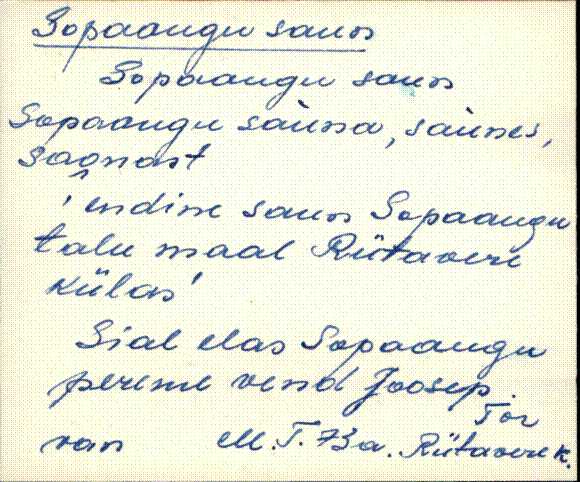 Sopaangu saun
Sopaangu saun
Sopaangu sauna, saunas,
saunast
'endine saun Sopaangu
talu maal Rütavere
külas'
Sial elas Sopaangu
pereme vend Joosep.
Tor
van M. T. 73 a. Rütavere k.